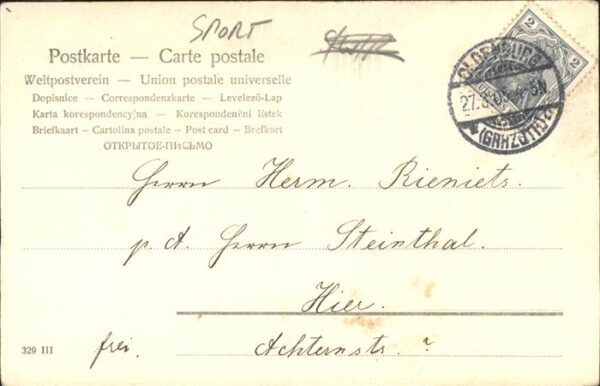 SPORT
Postkarte — Carte postale
Weltpostverein — Union postale universelle
Dopisnice — Correspondenzkarte — Levelező-Lap
Karta korespondencyjna — Korespondenční lístek
Briefkaart — Cartolina postale — Post card — Brefkort
ОТКРЫТОЕ-ПИСЬМО
2
2
OLDENBURG
27.
(GRHZGTH.)
Herrn Herm. Rieniets.
p. A. Herrn Steinthal.
Hier.
329 III
frei.
Achternstr. ?